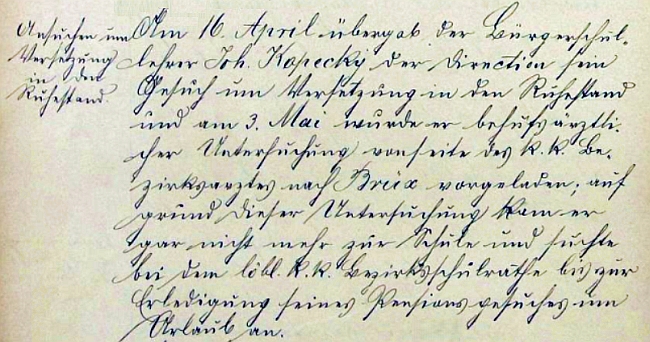 Ansuchen um
Versetzung
in den
Ruhestand.
Am 16. April übergab der Bürgerschul-
lehrer Joh. Kopecký der Direction sein
Gesuch um Versetzung in den Ruhestand
und am 3. Mai wurde er behufs ärztli-
cher Untersuchung vonseite des k. k. Be-
zirksarztes nach Brüx vorgeladen; auf
grund dieser Untersuchung kam er
gar nicht mehr zur Schule und suchte
bei dem löbl. k. k. Bezirksschulrathe bis zur
Erledigung seines Pensionsgesuches um
Urlaub an.